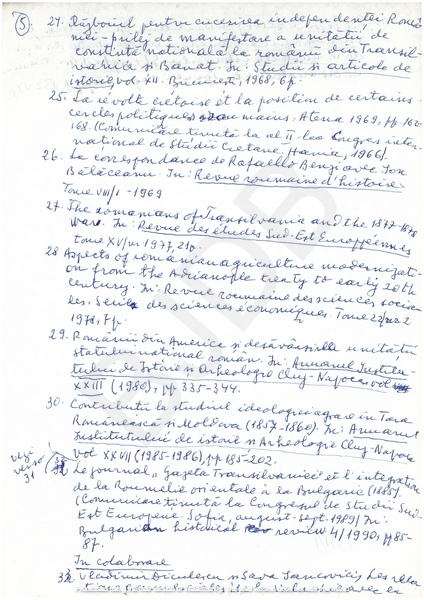 (5)
24. Războiul pentru cucerirea independentei Româ-
niei - prilej de manifestare a unitatii de
constiinta nationala la românii din Transil-
vania si Banat. In: Studii si articole de
istorie, vol. XII. Bucuresti, 1968, 6 p.
25. La révolte crétoise et la position de certains
cercles politiques roumains. Atena 1969, pp. 162-
168. (Comunicare tinută la al II-lea Congres inter-
national de Studii Cretane, Hania, 1966).
26. La correspondance de Rafaello Benzi avec Ion
Bălăceanu. In: Revue roumaine d'histoire
Tome VIII/1 - 1969
27. The romanians of Transylvania and the 1877-1878
War. In: Revue des études Sud-Est Européennes
tome XV/ 1977, 21 p.
28 Aspects of romanian agriculture modernizati-
on from the Adrianople treaty to early 20th
century. In: Revue roumaine des sciences socia-
les. Série des sciences économiques. Tome 22, nr. 2
1978, 7 p.
29. Românii din America si desăvârsirea unitătii
statului national român. In: Anuarul Institu-
tului de Istorie si Arheologie Cluj-Napoca vol
XXIII (1980), pp 335-344.
30. Contributii la studiul ideologiei agrare in Tara
Românească si Moldova (1857-1860). In: Anuarul
Institutului de istorie si Arheologie Cluj-Napoca
vol XXVII (1985-1986), pp 185-202.
vezi
verso
31
32 Le journal "Gazeta Transilvaniei" et l'intégration
de la Roumelie orientale à la Bulgarie (1885).
(Comunicare tinută la Congresul de Studii Sud-
Est Europene, Sofia, august-sept. 1989) In:
Bulgarian historical review 4/1990, pp 85-
87.
In colaborare
33. Vladimir Diculescu si Sava Iancovici, Les rela-